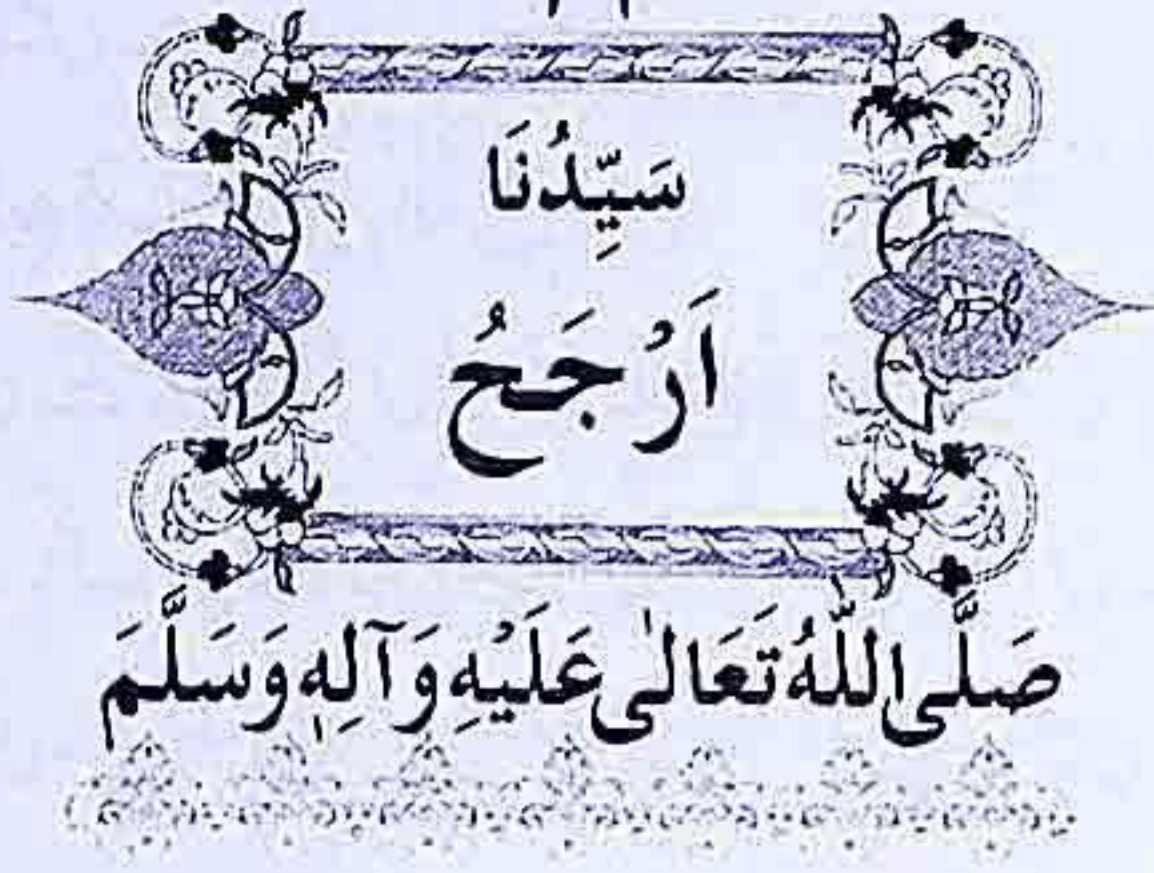 سَيِّدُنَا
اَرْجَحُ
صَلَّى اللّٰهُ تَعَالٰى عَلَيْهِ وَآلِهٖ وَسَلَّمَ